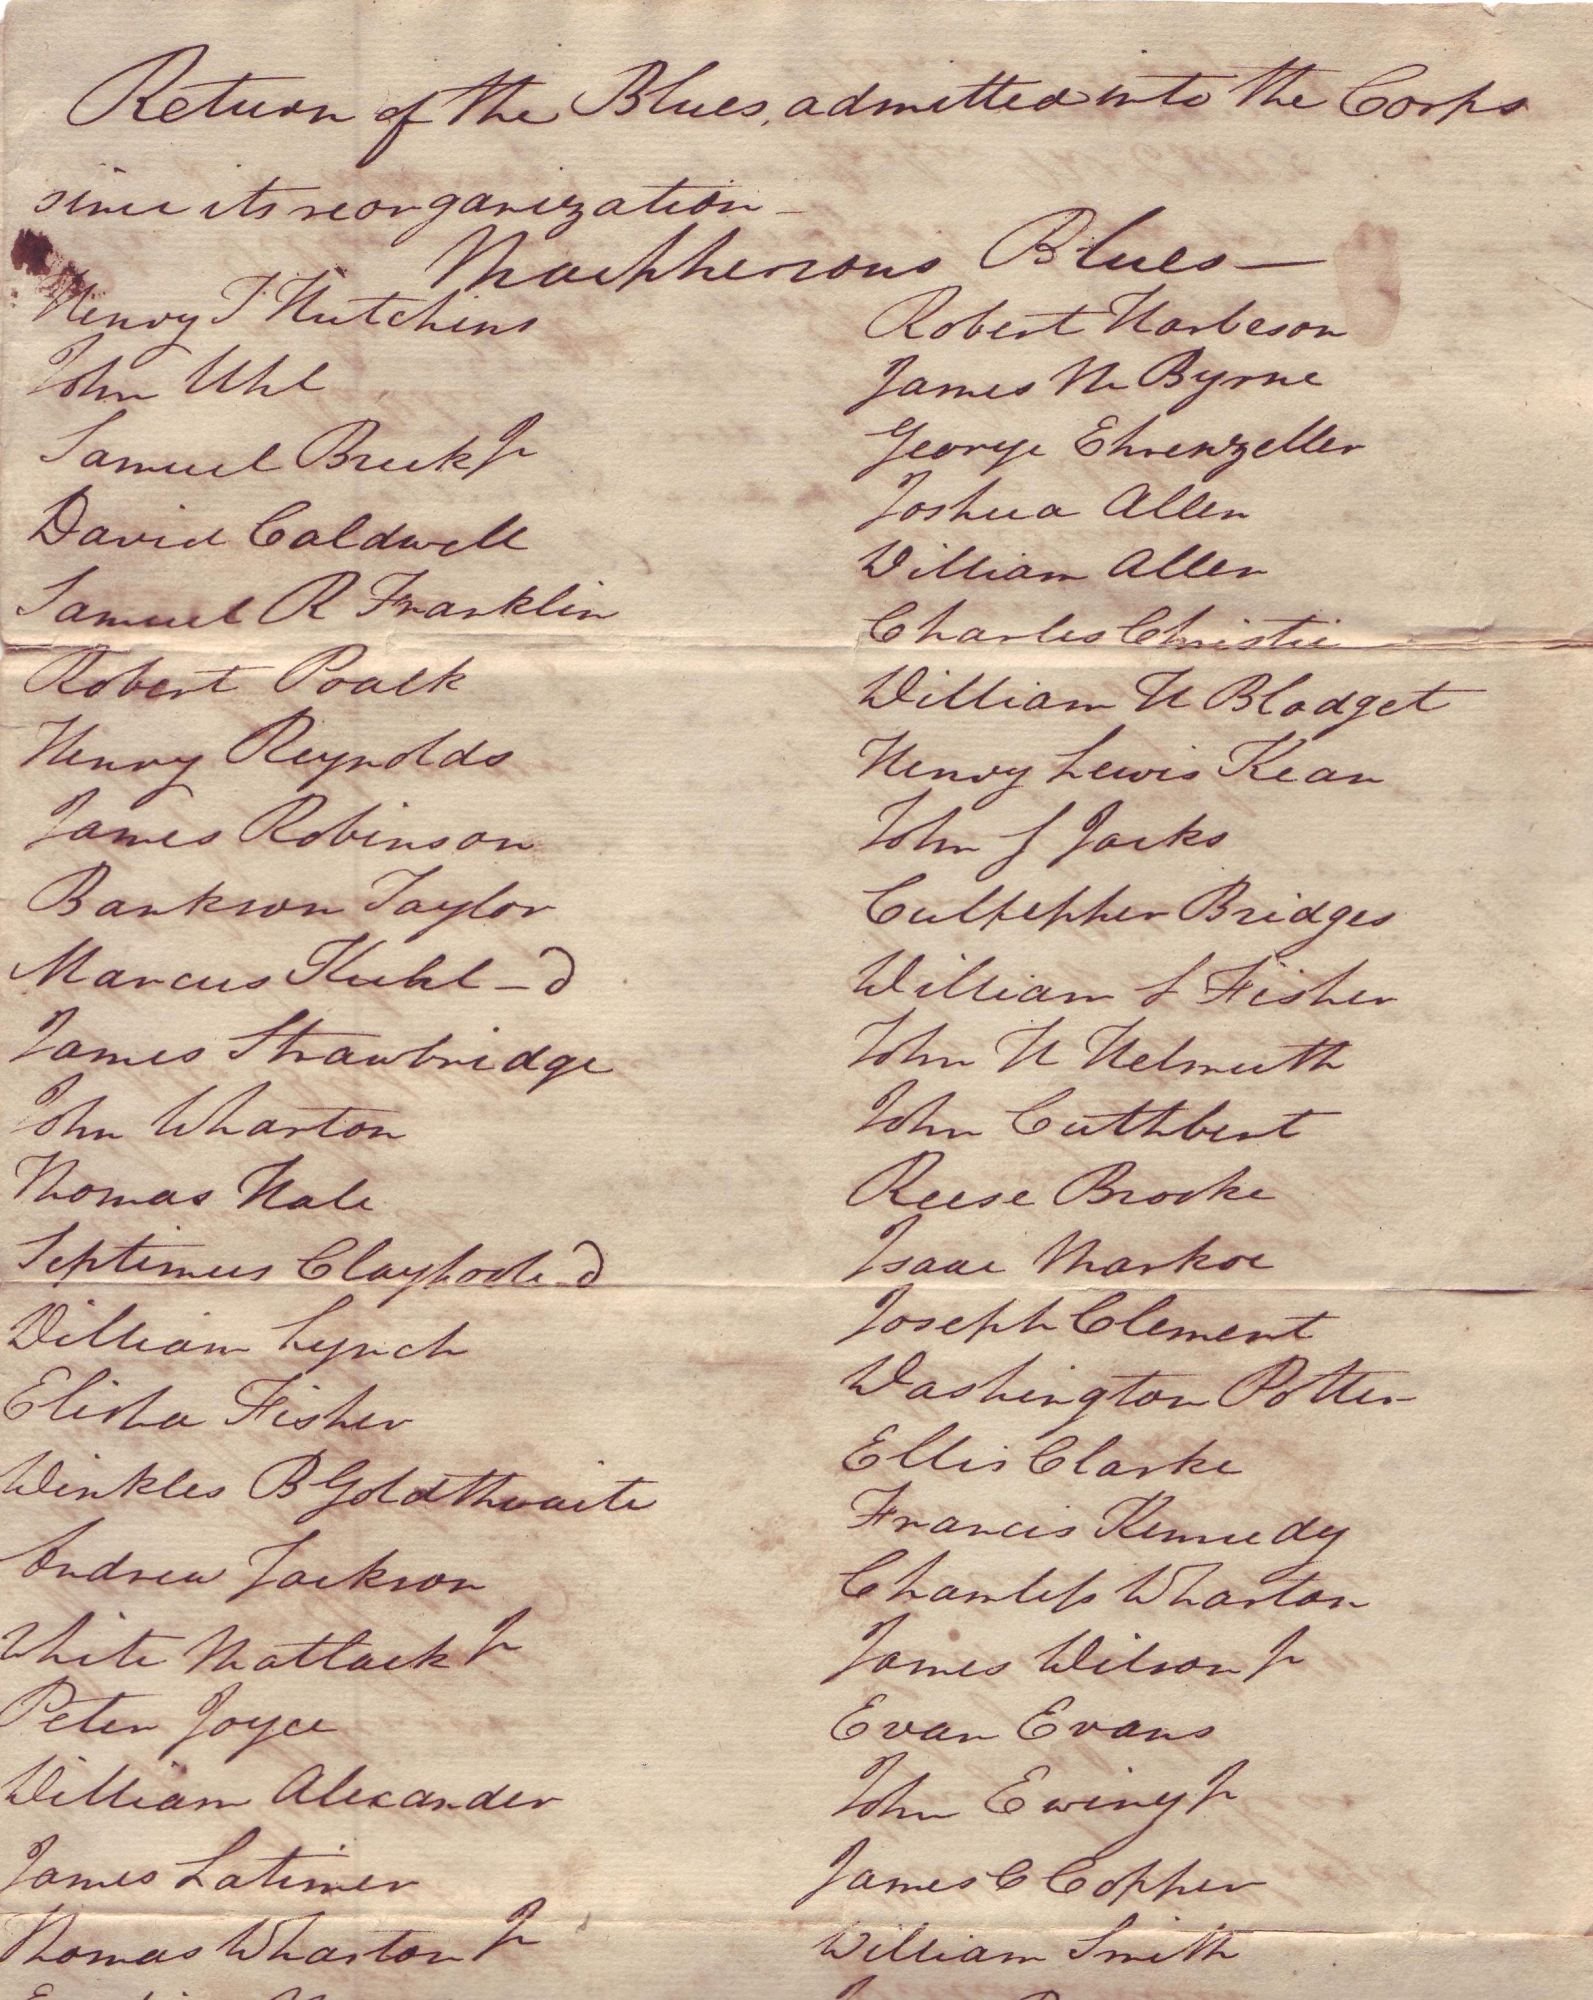 Return of the Blues, admitted into the Corps
since its reorganization –
Macphersons Blues –
Henry T Hutchins
John Uhl
Samuel Breck Jr
David Caldwell
Samuel R Franklin
Robert Poalk
Henry Reynolds
James Robinson
Bankson Taylor
Marcus Kuhl – d
James Strawbridge
John Wharton
Thomas Hale
Septimus Claypoole – d
William Lynch
Elisha Fisher
Winkles B Goldthwaite
Andrew Jackson
White Matlack Jr
Peter Joyce
William Alexander
James Latimer
Thomas Wharton Jr
Robert Harbeson
James M Byrne
George Ehrenzeller
Joshua Allen
William Allen
Charles Christie
William H Blodget
Henry Lewis Kean
John J Jacks
Culpepper Bridges
William S Fisher
John H Helmuth
John Cuthbert
Reese Brooke
Isaac Markoe
Joseph Clement
Washington Potter
Ellis Clarke
Francis Kennedy
Chamless Wharton
James Wilson Jr
Evan Evans
John Ewing Jr
James C Copper
William Smith